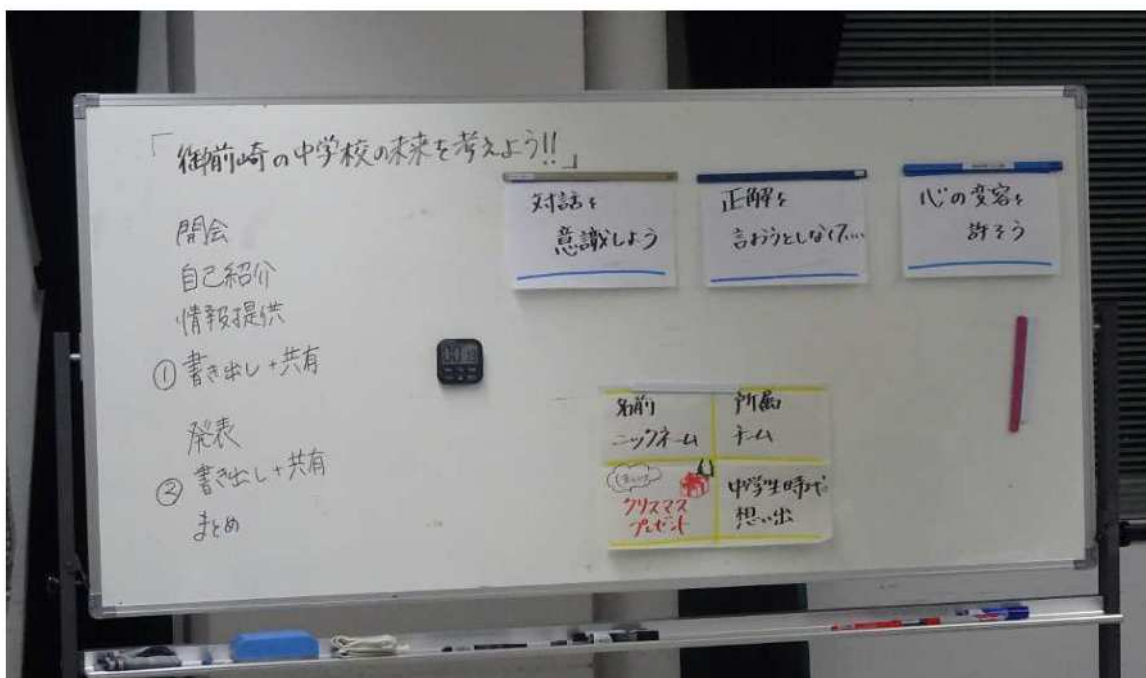 「御前崎の中学校の未来を考えよう!!」
開会
自己紹介
情報提供
①書き出し+共有
発表
②書き出し+共有
まとめ
対話を
意識しよう
正解を
言おうとしなくて…
心の変容を
許そう
名前
ニックネーム
所属
チーム
クリスマス
プレゼント
中学生時代
想い出